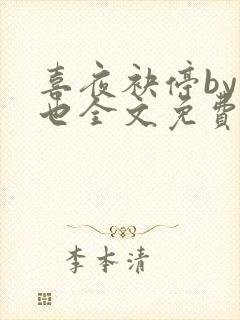 喜夜袂停by
也全文免费
李本清